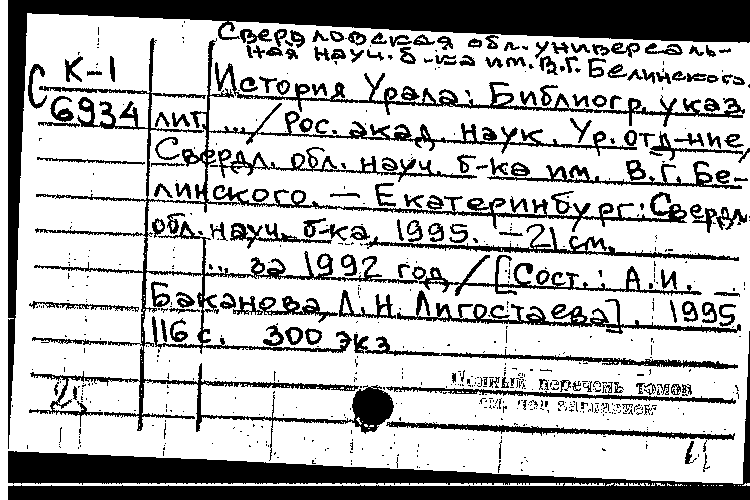 Свердловская обл. универсаль-
ная науч. б-ка им. В.Г. Белинского.
К-1
С 6934
История Урала: Библиогр. указ.
лит. ... / Рос. акад. наук. Ур. отд-ние,
Свердл. обл. науч. б-ка им. В.Г. Бе-
линского. — Екатеринбург: Свердл.
обл. науч. б-ка, 1995. — 21 см.
... за 1992 год / [Сост.: А.И.
Баканова, Л.Н. Лигостаева]. 1995.
116 с. 300 экз.
Полный перечень томов
см. под заглавием